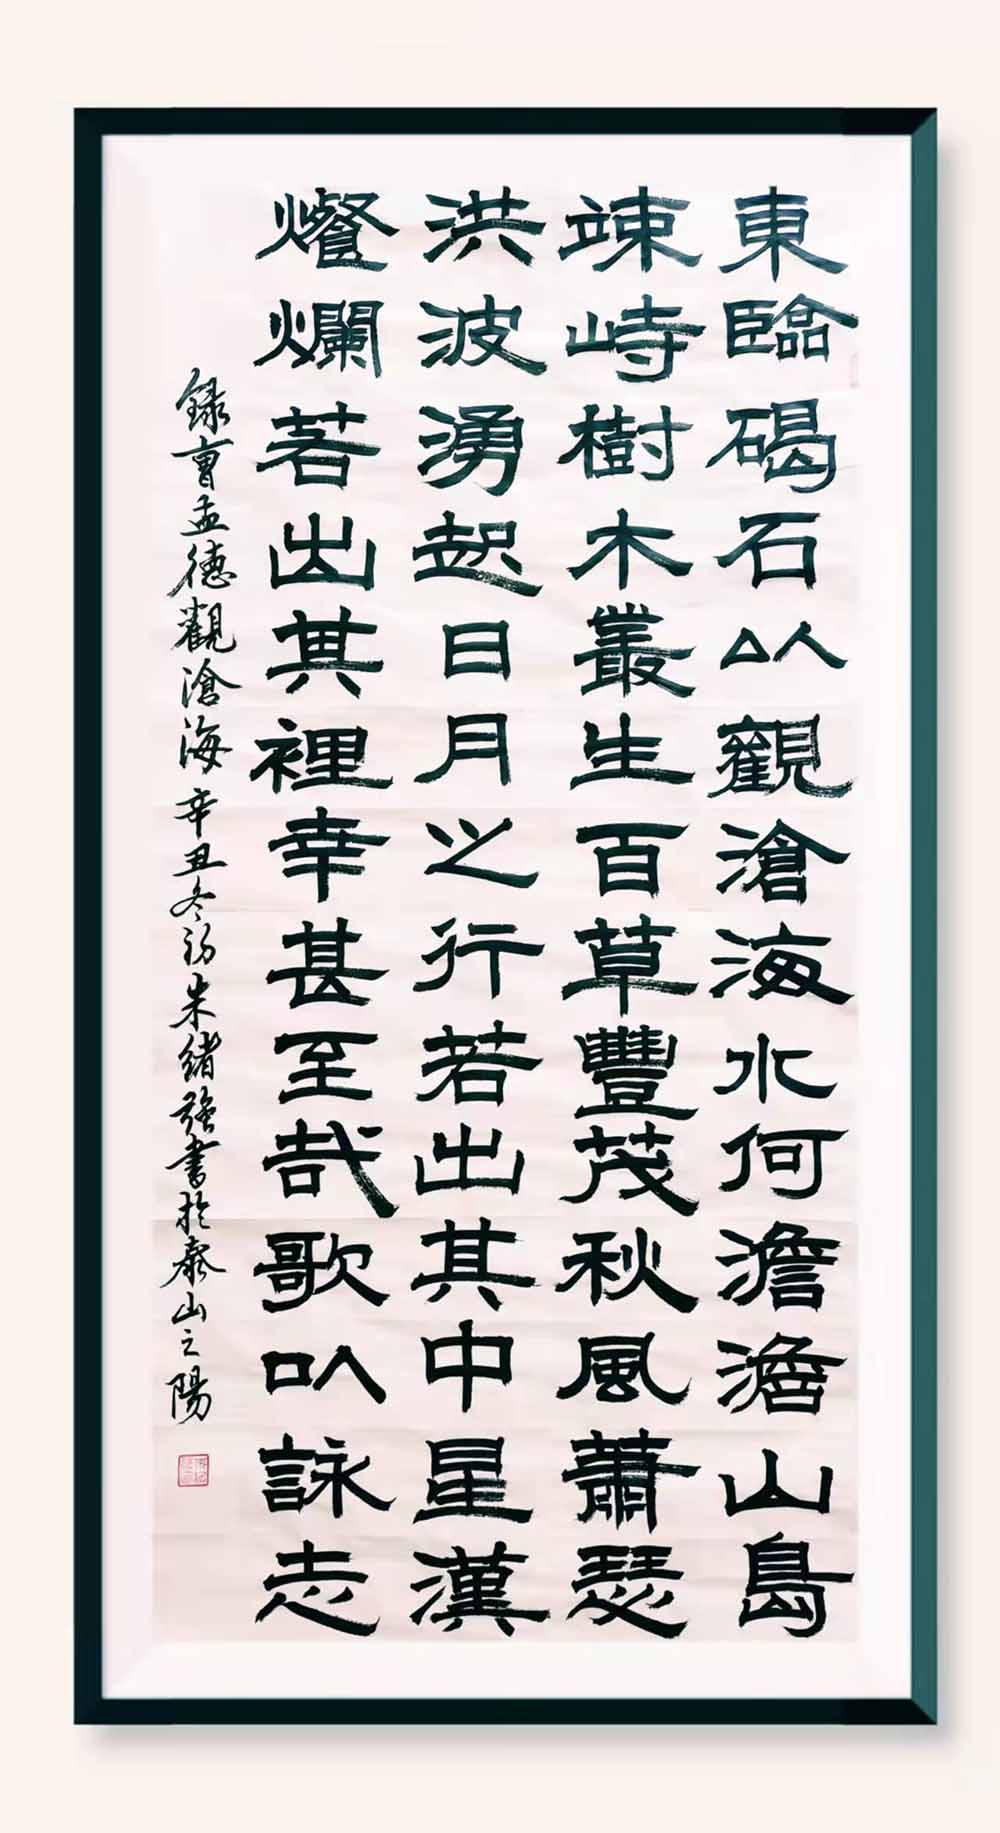 東臨碣石以觀滄海水何澹澹山島
竦峙樹木叢生百草豐茂秋風蕭瑟
洪波湧起日月之行若出其中星漢
燦爛若出其裡幸甚至哉歌以詠志
錄曹孟德觀滄海辛丑冬初朱緒強書於泰山之陽